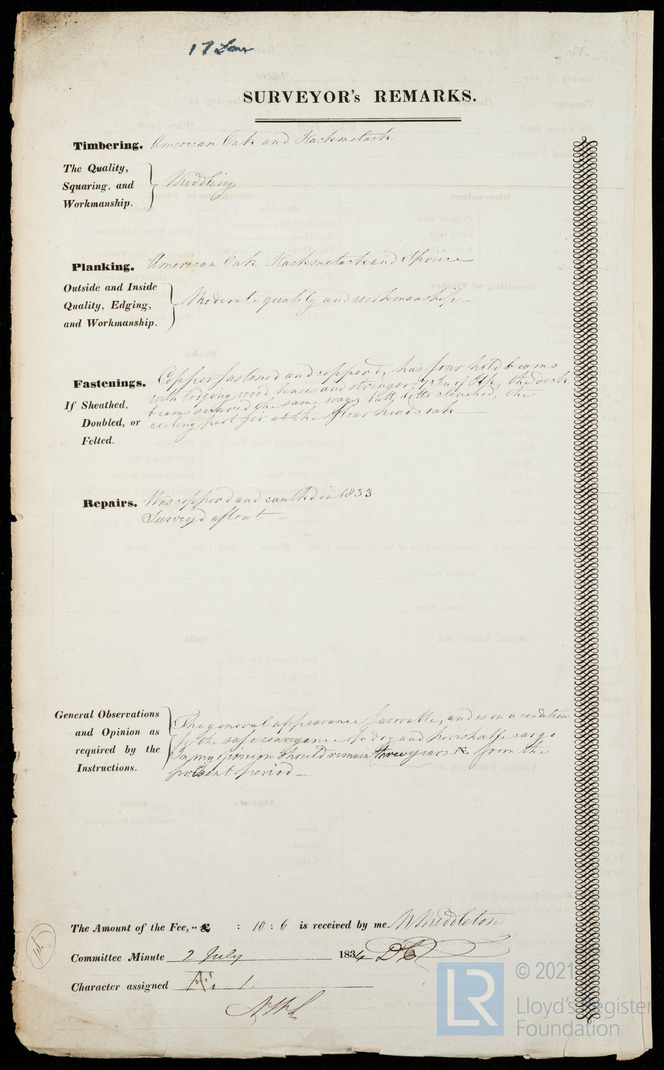 17 Jan
SURVEYOR's REMARKS.
Timbering. American Oak and Hackmatack
The Quality,
Squaring, and
Workmanship.
Middling
Planking. American Oak Hackmatack and Spruce
Outside and Inside
Quality, Edging,
and Workmanship.
Moderate quality and workmanship
Fastenings. Copper fastened and copperd, has four hold beams
with lodging wood knees and stringers the deck
beams secured the same way, butt bolts clenched, the
ceiling part fir at the floor heads oak
If Sheathed,
Doubled, or
Felted.
Repairs. Was copperd and caulkd in 1833
Surveyd afloat
General Observations
and Opinion as
required by the
Instructions.
The general appearance favorable, and is in a condition
for the safe conveyance of dry and perishable cargo
In my opinion should remain three years from the
present period
The Amount of the Fee, £ : 10 : 6 is received by me. Middleton
Committee Minute 2 July 1834
Character assigned 1
© 2021
LR
Lloyd's Register
Foundation